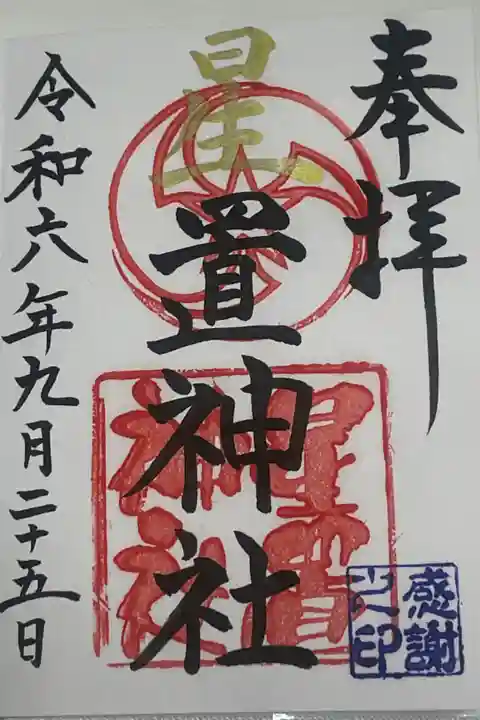 奉拝
星置神社
令和六年九月二十五日
星置神社
感謝
之印